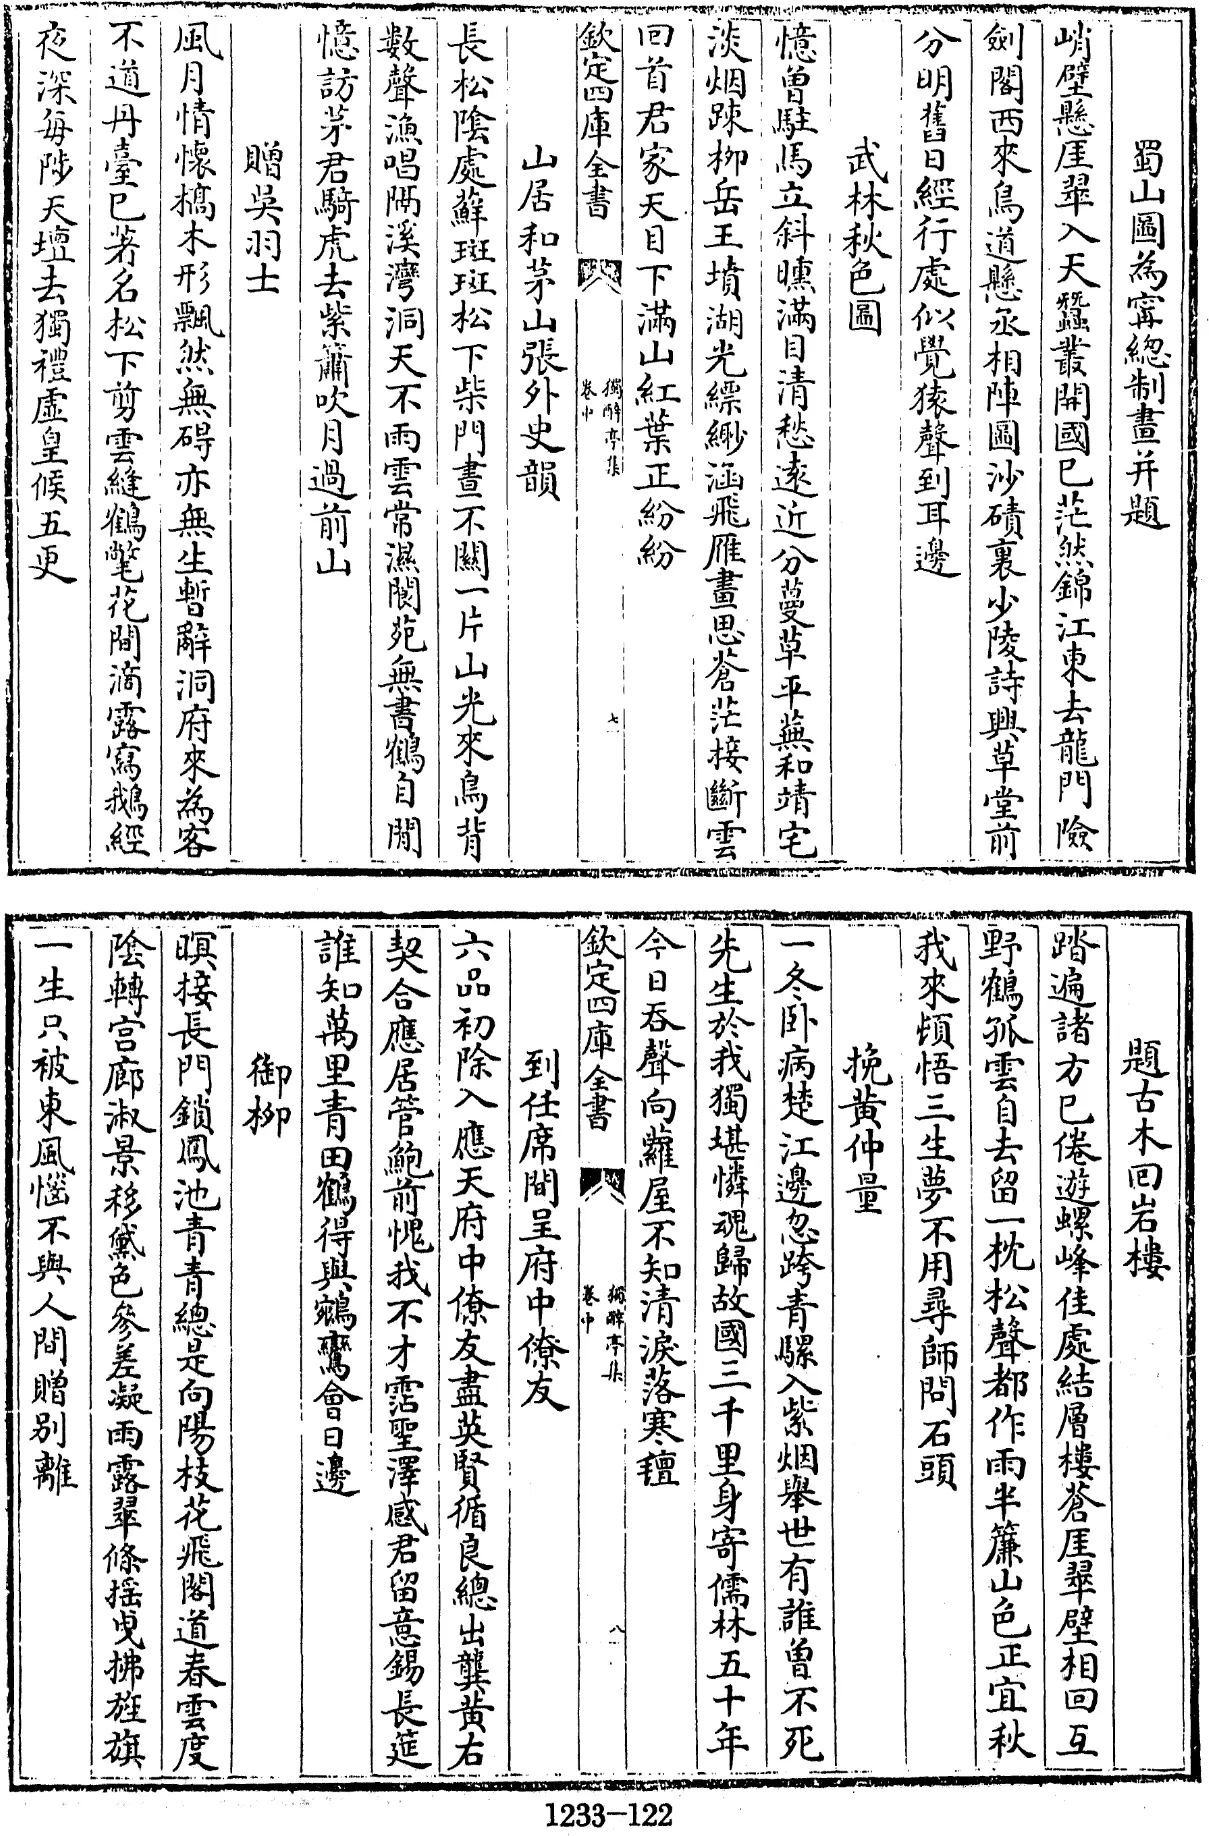 蜀山圖為甯總制畫并題
峭壁懸厓翠入天蠶叢開國已茫然錦江東去龍門險
劍閣西來鳥道懸丞相陣圖沙磧裏少陵詩興草堂前
分明舊日經行處似覺猿聲到耳邊
武林秋色圖
憶曾駐馬立斜曛滿目清愁遠近分蔓草平蕪和靖宅
淡烟踈柳岳王墳湖光縹緲涵飛雁畫思蒼茫接斷雲
回首君家天目下滿山紅葉正紛紛
欽定四庫全書
獨醉亭集
卷中
七
山居和茅山張外史韻
長松陰處蘚斑斑松下柴門晝不關一片山光來鳥背
數聲漁唱隔溪灣洞天不雨雲常濕閬苑無書鶴自閒
憶訪茅君騎虎去紫簫吹月過前山
贈吳羽士
風月情懷槁木形飄然無碍亦無生暫辭洞府來為客
不道丹臺已著名松下剪雲縫鶴氅花間滴露寫鵝經
夜深每陟天壇去獨禮虛皇候五更
題古木回岩樓
踏遍諸方已倦遊螺峰佳處結層樓蒼厓翠壁相回互
野鶴孤雲自去留一枕松聲都作雨半簾山色正宜秋
我來頓悟三生夢不用尋師問石頭
挽黃仲量
一冬卧病楚江邊忽跨青騾入紫烟舉世有誰曾不死
先生於我獨堪憐魂歸故國三千里身寄儒林五十年
今日吞聲向蘿屋不知清淚落寒氊
欽定四庫全書
獨醉亭集
卷中
八
到任席間呈府中僚友
六品初除入應天府中僚友盡英賢循良總出龔黃右
契合應居管鮑前愧我不才霑聖澤感君留意錫長筵
誰知萬里青田鶴得與鵷鸞會日邊
御柳
暝接長門鎖鳳池青青總是向陽枝花飛閣道春雲度
陰轉宮廊淑景移黛色參差凝雨露翠條搖曳拂旌旗
一生只被東風惱不與人間贈別離
1233-122